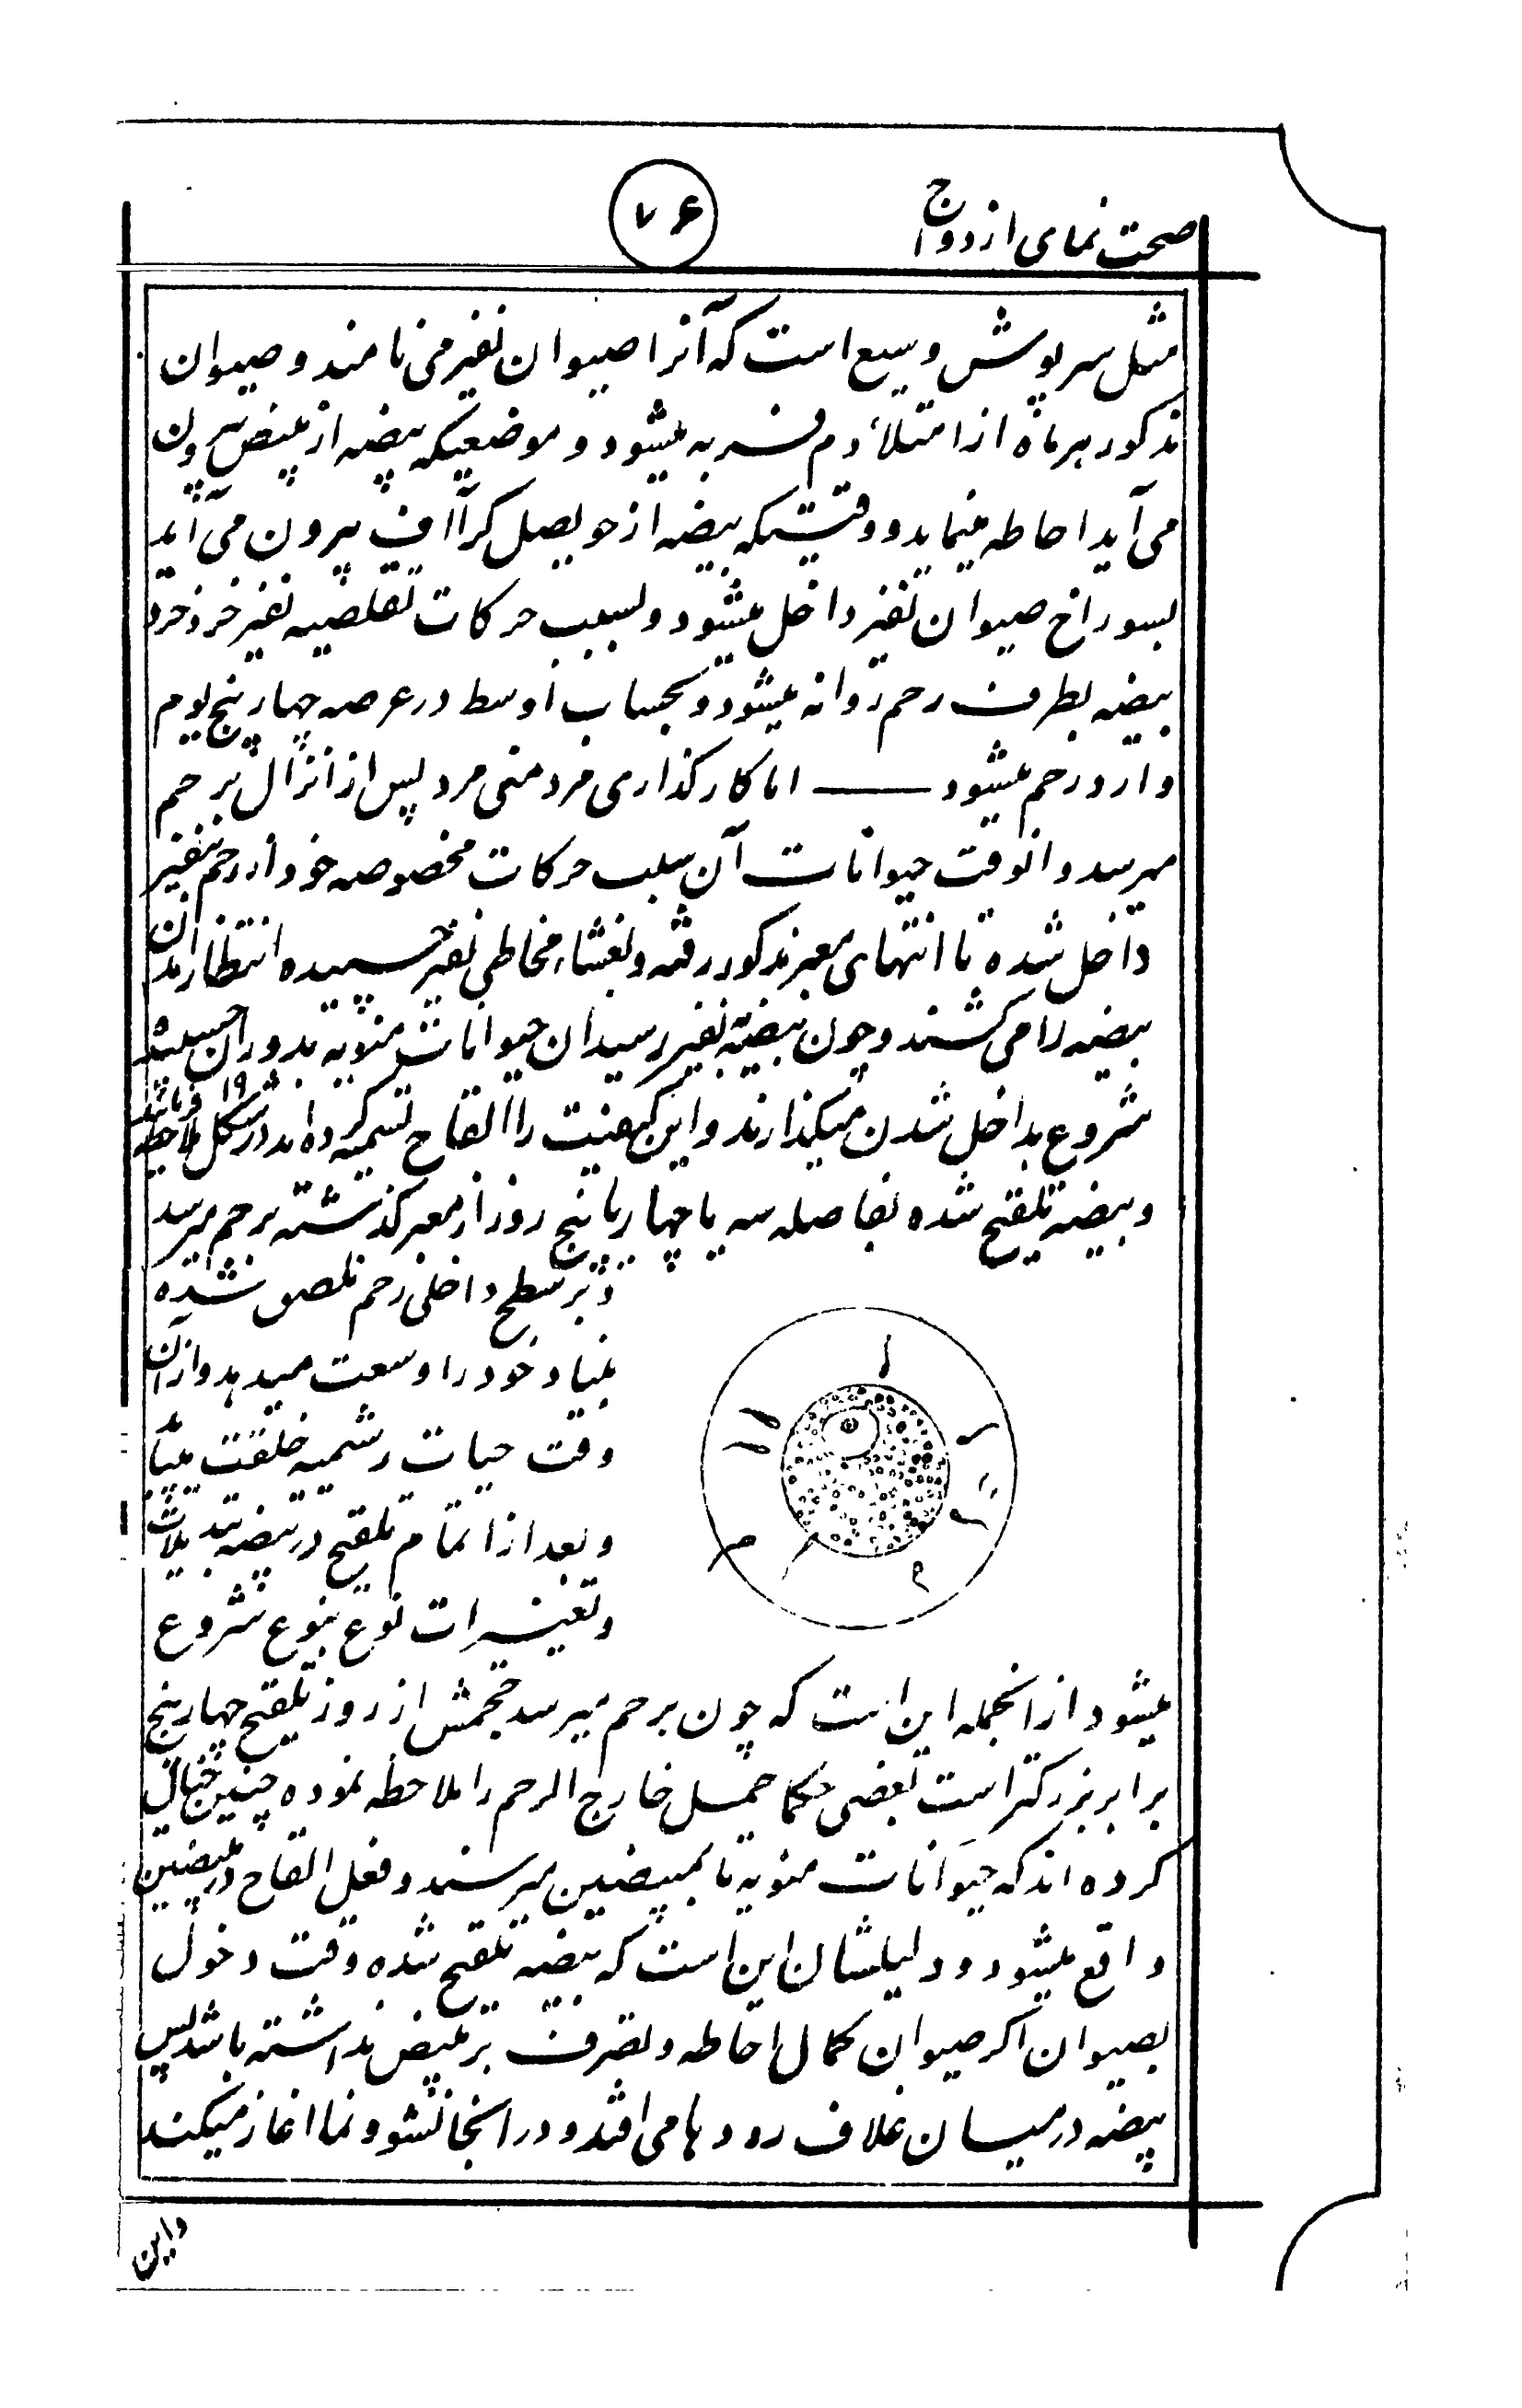 صحت نمای ازدواج
۷۶
مثل سرپوش وسیع است که آنرا صیوان نفیر می نامند و صیوان
مذکور هر ماه از امتلأ دم فربه میشود و موضعیکه بیضه از مبیض بیرون
می آید احاطه مینماید و وقتیکه بیضه از حویصل کرآاف بیرون می آید
بسوراخ صیوان نفیر داخل میشود و بسبب حرکات تقلصیه نفیر خرد خرد
بیضه بطرف رحم روانه میشود و بحساب اوسط در عرصه چهار پنج یوم
وارد رحم میشود — اما کارگذاری مرد منی مرد پس از انزال برحم
میرسد و انوقت حیوانات آن بسبب حرکات مخصوصه خود از رحم بنفیر
داخل شده تا انتهای معبر مذکور رفته و بغشاء مخاطی نفیر چسپیده انتظار آمدن
بیضه را می کشند و چون بیضه بنفیر رسید ان حیوانات منویه بدور ان چسپیده
شروع بداخل شدن میگذارند و این کیفیت را القاح تسمیه کرده اند در شکل ۱۹ ملاحظه فرمائید
و بیضه تلقیح شده بفاصله سه یا چهار یا پنج روز از معبر گذشته برحم میرسد
و بر سطح داخلی رحم ملصق شده
بنیاد خود را وسعت میدهد و از آن
وقت حیات رشمیه خلقت مییابد
و بعد از اتمام تلقیح در بیضه تبدیلات
و تغییرات نوع بنوع شروع
میشود از انجمله این است که چون برحم میرسد حجمش از روز تلقیح چهار پنج
برابر بزرگتر است بعضی حکما حمل خارج الرحم را ملاحظه نموده چنین خیال
کرده اند که حیوانات منویه تا بمبیضین میرسند و فعل القاح در مبیضین
واقع میشود و دلیلشان این است که بیضه تلقیح شده وقت دخول
بصیوان اگر صیوان کمال احاطه و تصرف بر مبیض نداشته باشد پس
بیضه در میان غلاف رودها می افتد و در انجا نشو و نما اغاز میکند
و این